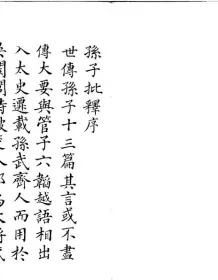 孫子批釋序
世傳孫子十三篇其言或不盡
傳大要與管子六韜越語相出
入太史遷載孫武齊人而用於